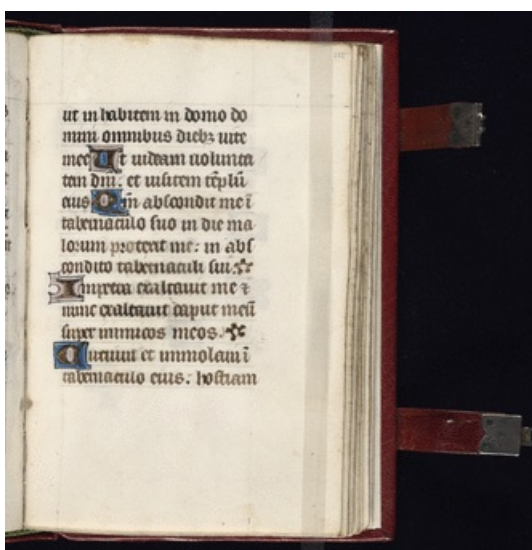 ut in habitem in domo do
mini omnibus dieb3 uite
mee Ut uideam uolunta
tem dm̄. et uisitem tēplū
eius Qm̄ abscondit me ī
tabernaculo suo in die ma
lorum protexit me: in abs
condito tabernaculi sui.
In petra exaltauit me ⁊
nunc exaltauit caput meū
super inimicos meos.
Circuiui et immolaui ī
tabernaculo eius. hostiam